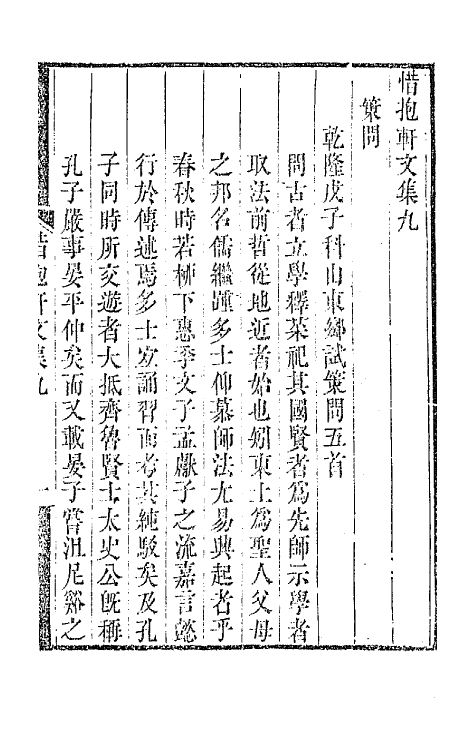 惜抱軒文集九
策問
乾隆戊子科山東鄉試策問五首
問古者立學釋菜祀其國賢者爲先師示學者
取法前哲從地近者始也矧東土爲聖人父母
之邦名儒繼踵多士仰慕師法尤易興起者乎
春秋時若柳下惠季文子孟獻子之流嘉言懿
行於傳述焉多士宜誦習而考其純駁矣及孔
子同時所交遊者大抵齊魯賢士太史公旣稱
孔子嚴事晏平仲矣而又載晏子嘗沮尼谿之
惜抱軒文集九
一